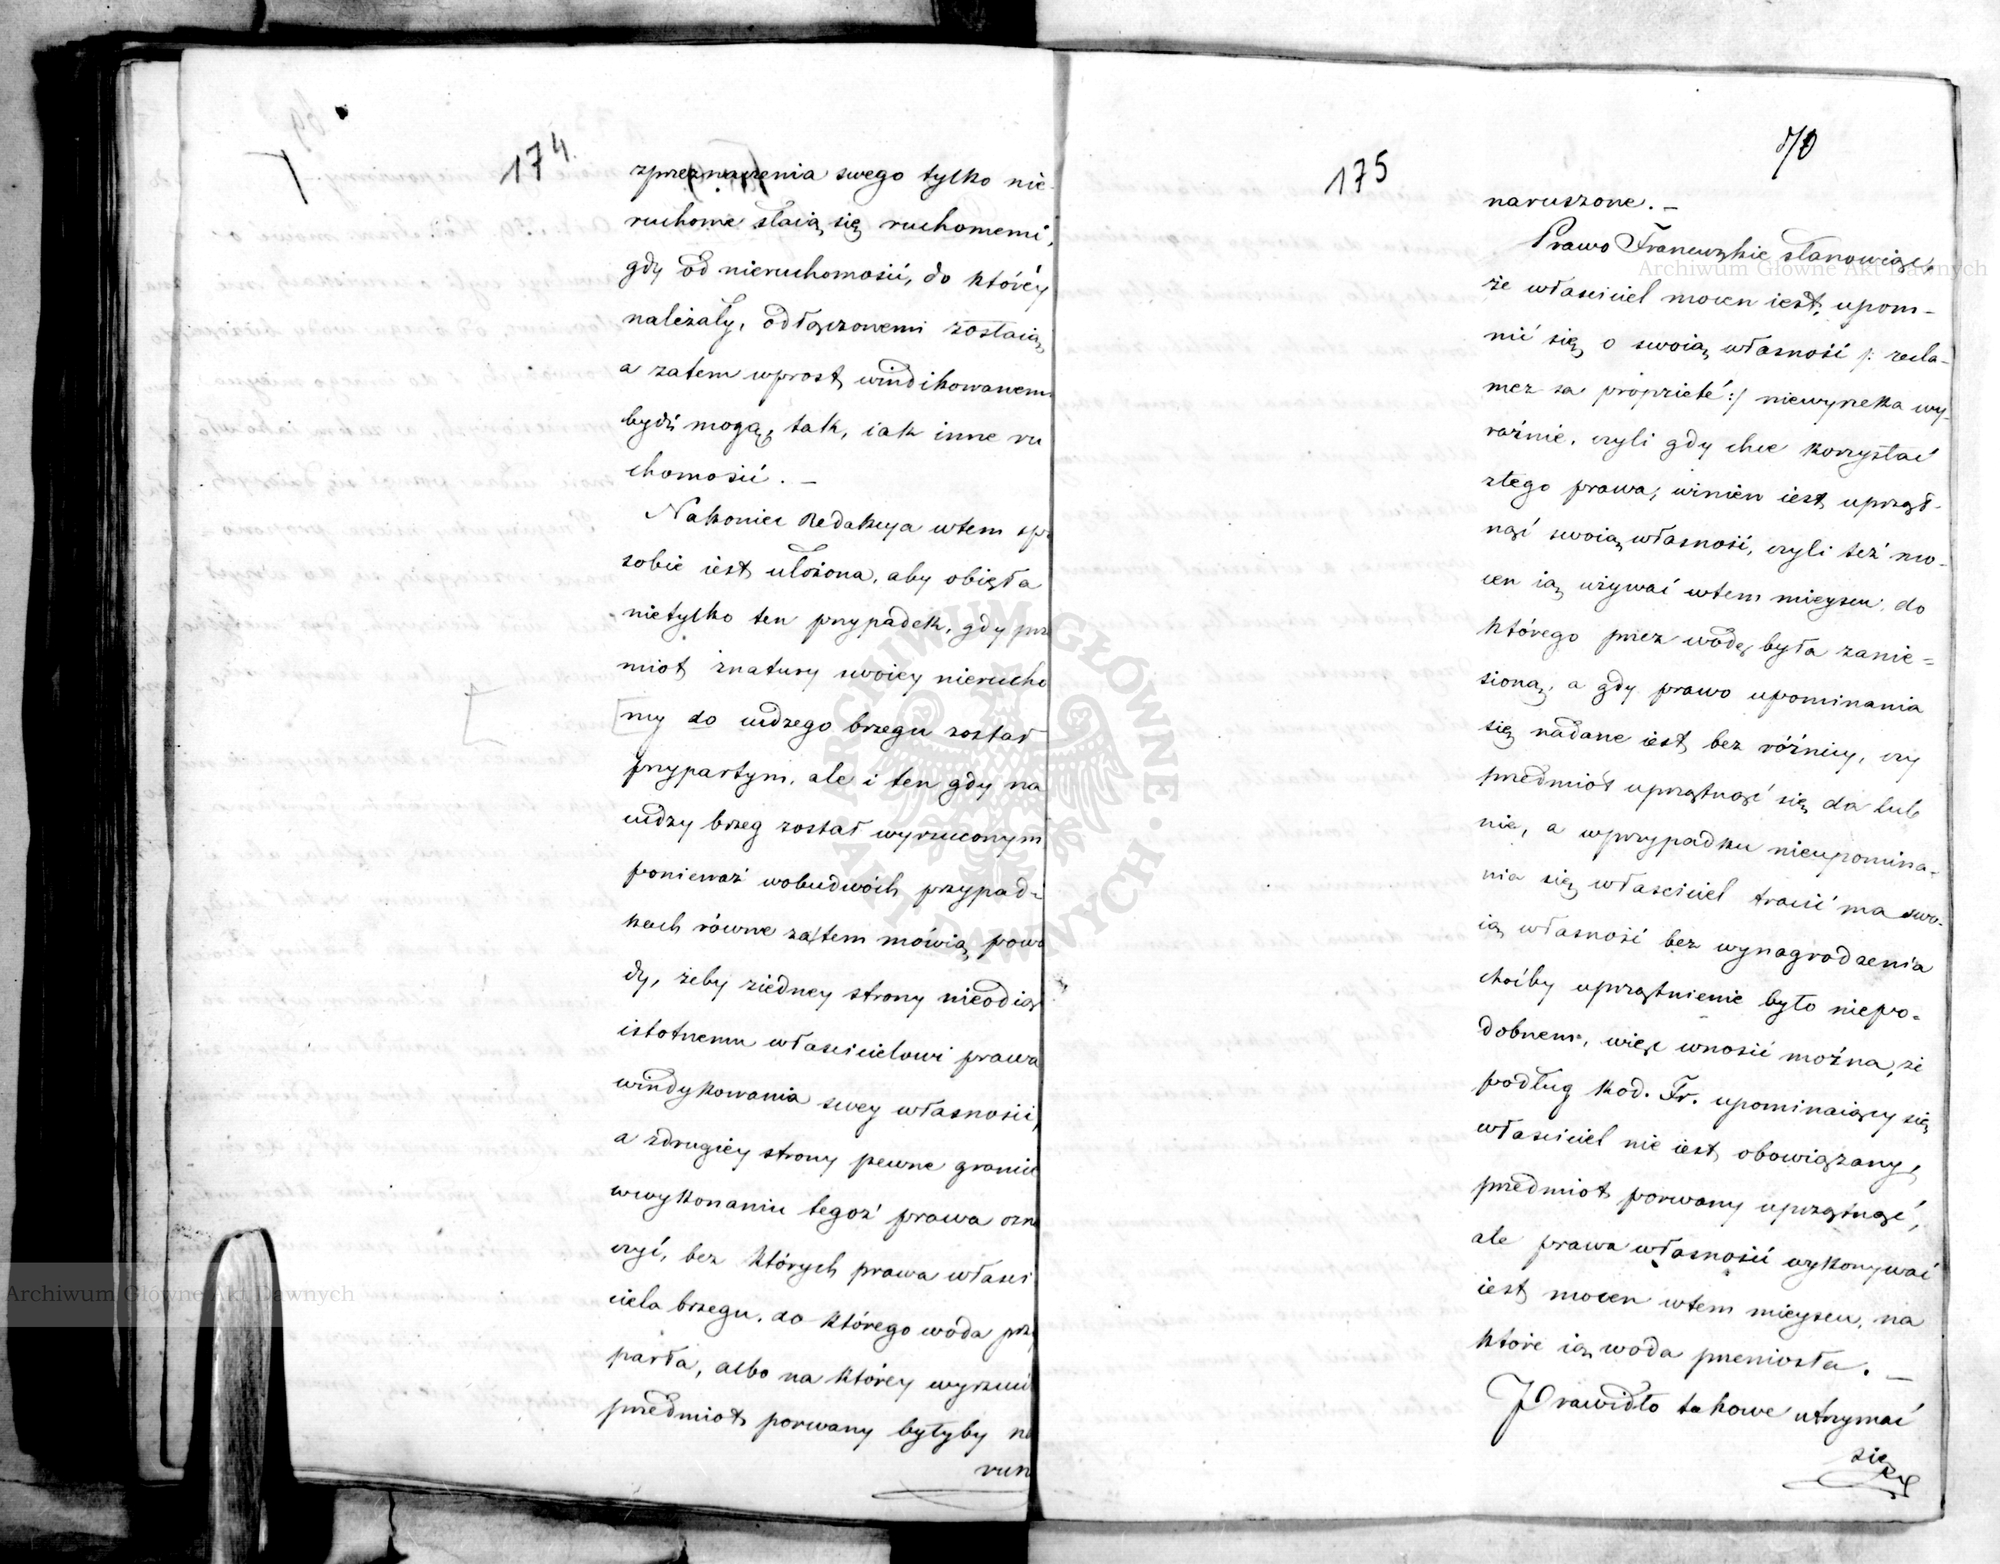 174.
zprzeznaczenia swego tylko nie-
ruchome staią się ruchomemi,
gdy od nieruchomości, do któréy
należały, odłączonemi zostaią,
a zatem wprost windikowanemi
bydź mogą, tak, iak inne ru
chomości. —
Nakoniec Redakcya wtem spo
sobie iest ułożona, aby obięła
nietylko ten przypadek, gdy prze
miot znatury swoiey nierucho
my do cudzego brzegu został
przypartym, ale i ten gdy na
cudzy brzeg został wyrzuconym
ponieważ wobudwóch przypad-
kach równe zatem mówią powo
dy, żeby ziedney strony nieodiąć
istotnemu właścicielowi prawa
windykowania swey własności,
a zdrugiey strony pewne granic
wwykonaniu tegoż prawa ozna
czyć, bez których prawa właści
ciela brzegu, do którego woda przy
parła, albo na którey wyrzuci
przedmiot porwany byłyby na
rusz
175
70
naruszone. —
Prawo Francuzkie stanowiąc,
że właściciel mocen iest, upom-
nić się o swoią własność /: recla-
mer sa propriété :/ niewyrzekła wy-
raźnie, czyli gdy chce korzystać
ztego prawa, winien iest uprząt-
nąć swoią własność, czyli też mo-
cen ią używać wtem mieyscu, do
którego przez wodę była zanie=
sioną, a gdy prawo upominania
się nadane iest bez różnicy, czy
przedmiot uprzątnąć się da lub
nie, a wprzypadku nieupomina-
nia się właściciel tracić ma swo-
ią własność bez wynagrodzenia
choćby uprzątnienie było niepo-
dobnem, więc wnosić można, że
podług Kod. Fr. upominaiący się
właściciel nie iest obowiązany,
przedmiot porwany uprzątnąć,
ale prawa własności wykonywać
iest mocen wtem mieyscu, na
które ią woda przeniosła. —
Prawidło takowe utrzymać
się
Archiwum Główne Akt Dawnych
Archiwum Główne Akt Dawnych
ARCHIWUM GŁÓWNE · AKT DAWNYCH ·